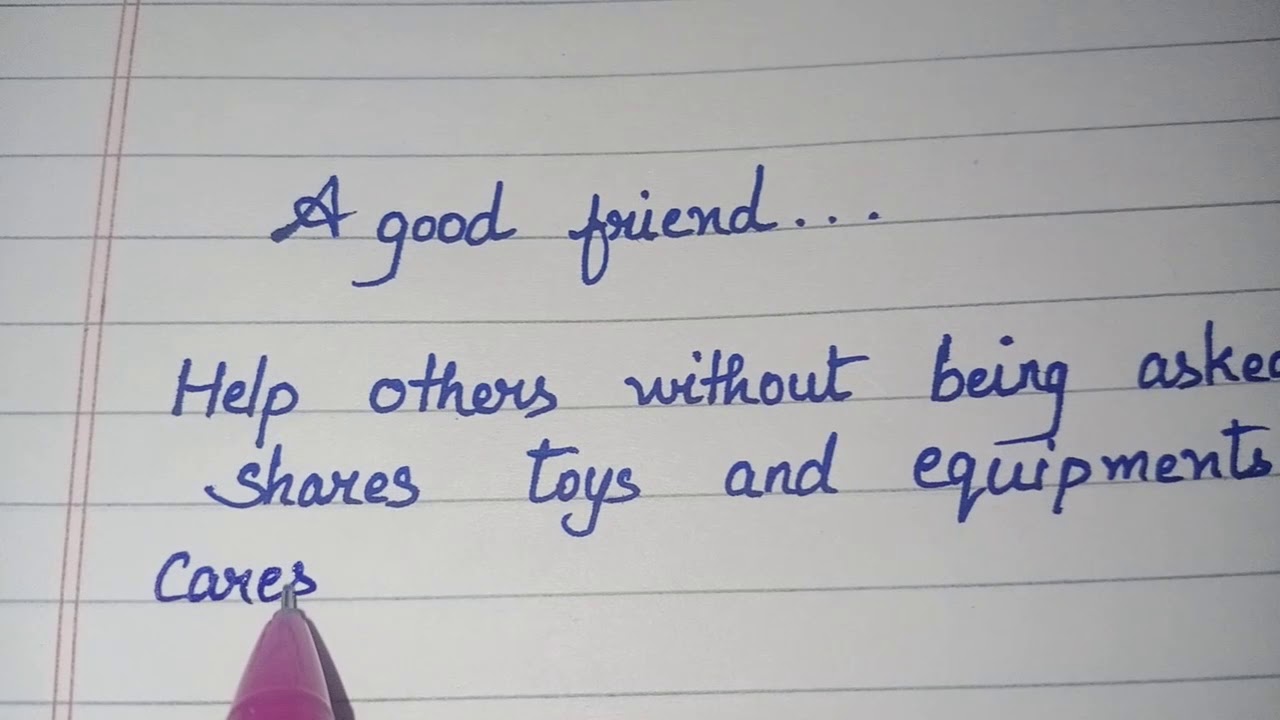 A good friend...
Help others without being asked
shares toys and equipments
Cares